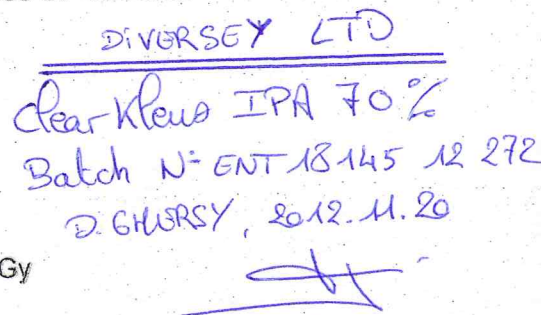 DIVERSEY LTD
Clear Klens IPA 70%
Batch N° ENT 18145 12 272
D. GHORSY, 2012.11.20
Gy